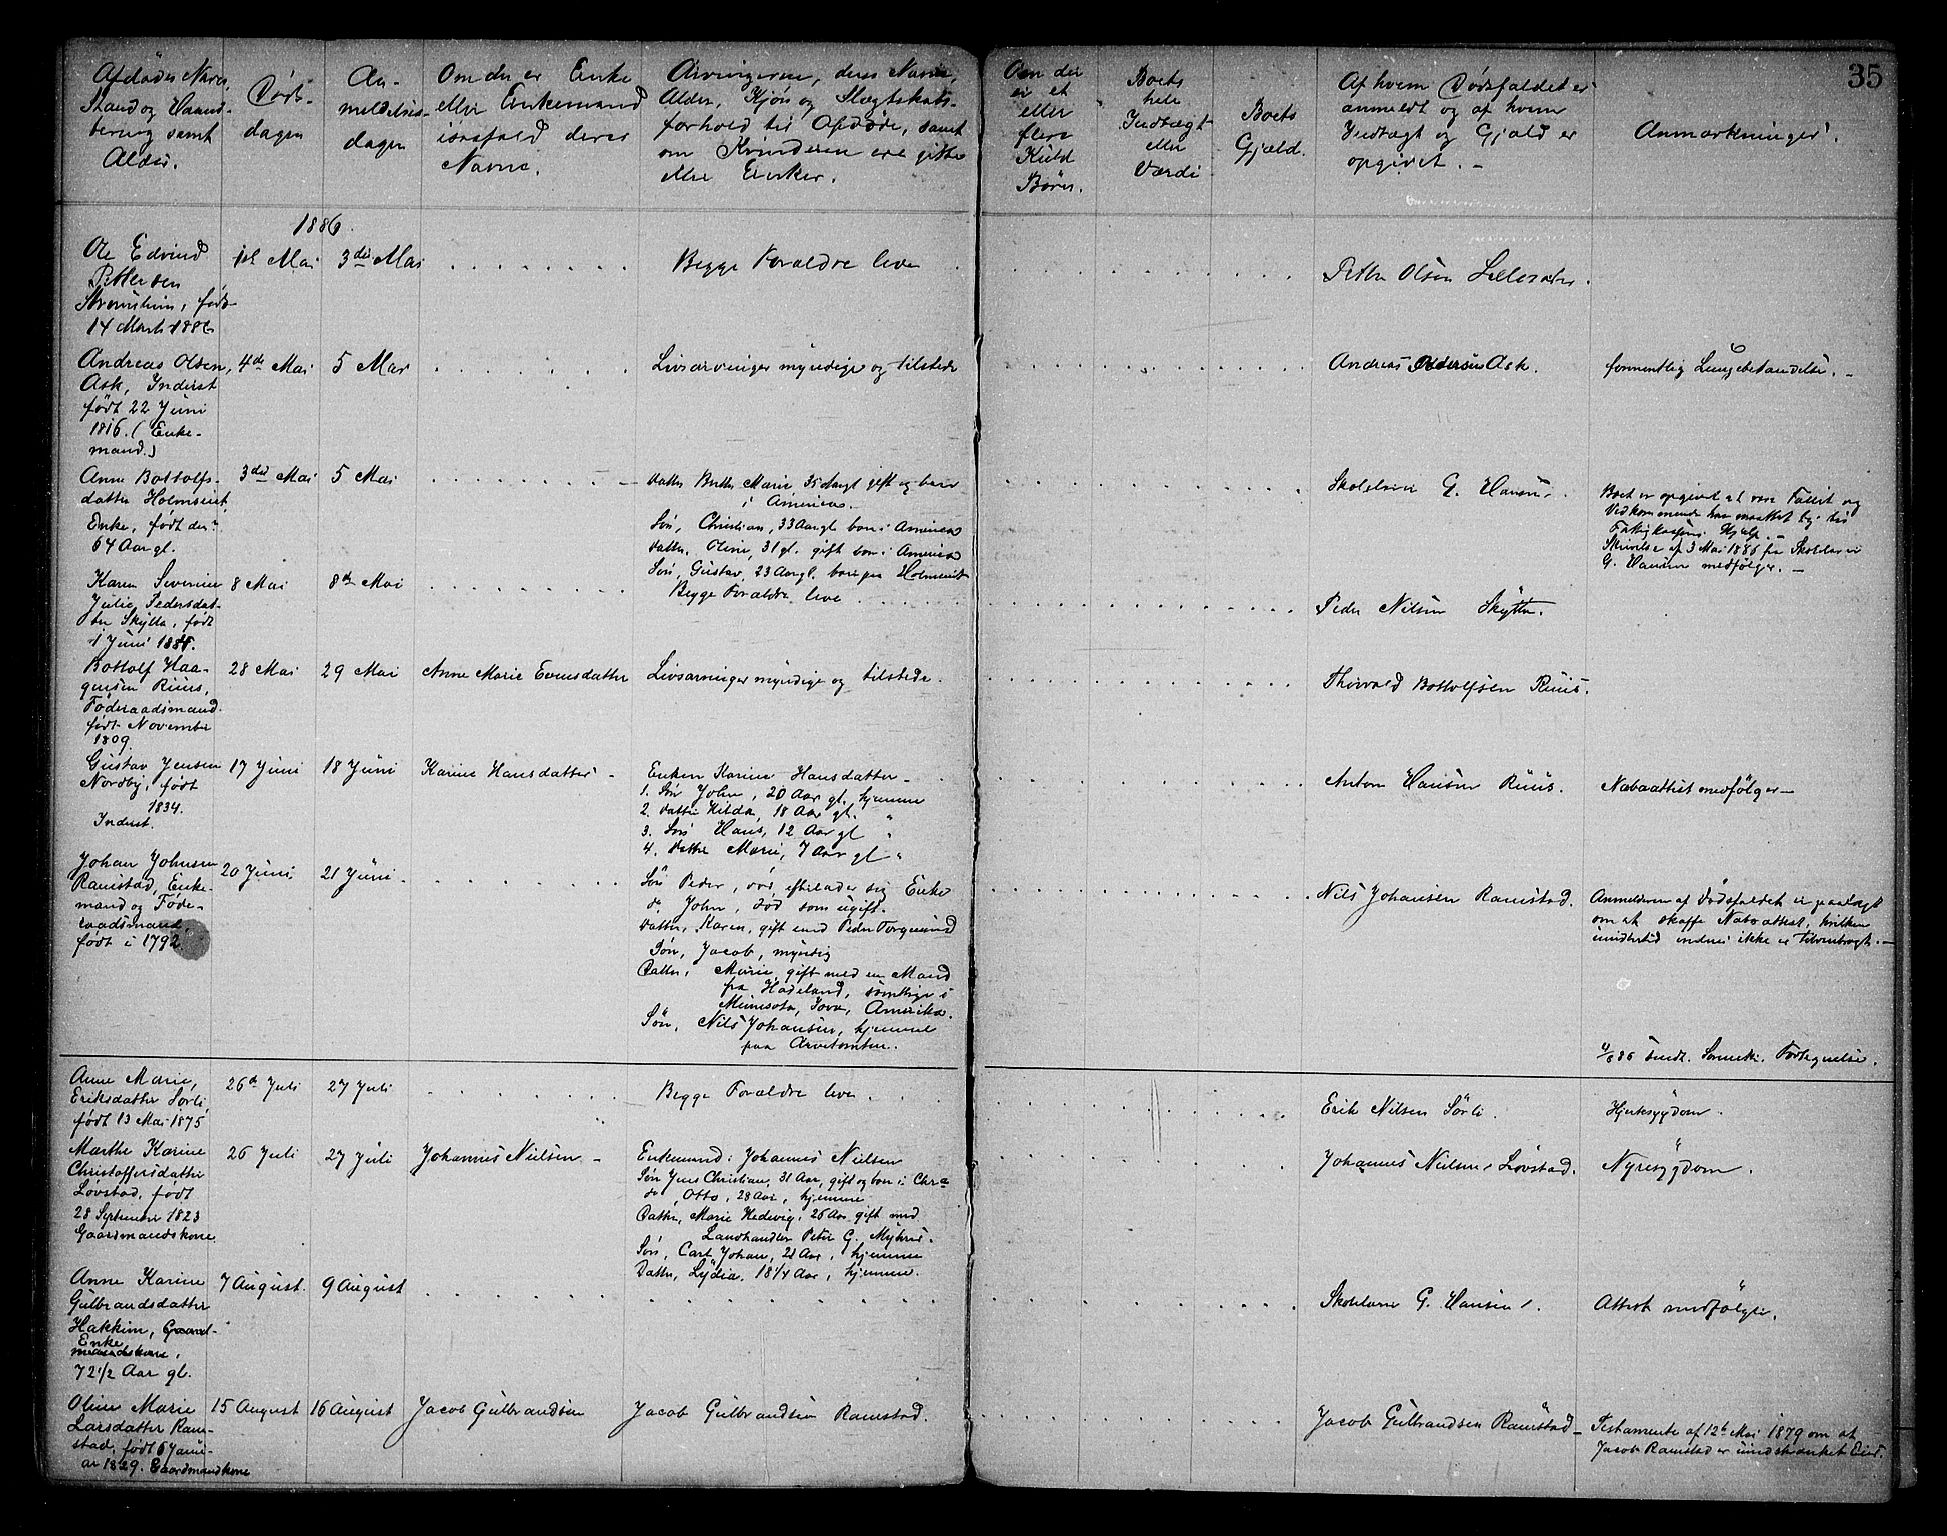 35
Afdødes Navn,
Stand og Haand-
tering samt
Alder.
Døds-
dagen
An-
meldelses-
dagen
Om du er Enke
eller Enkemand
i saafald deres
Navne.
Arvingerne, deres Navne,
Alder, Kjøn og Slægtskabs-
forhold til Afdøde, samt
om Kvinderne ere gifte
eller Enker.
Om der
er et
eller
flere
Kuld
Børn.
Boets
hele
Indtægt
eller
Værdi
Boets
Gjæld.
Af hvem Dødsfaldet er
anmeldt og af hvem
Indtægt og Gjæld er
opgivet. -
Anmærkninger.
1886.
Ole Edvind
Pettersen
født
14 Marts 1886
1ste Mai
3die Mai
Begge Forældre leve
Petter Olsen
Andreas Olsen
Ask, Inderst
født 22 Juni
1816. (Enke-
mand.)
4de Mai
5 Mai
Livsarvinger myndige og tilstede
Andreas Ask.
formentlig Lungebetændelse. -
Anne Bottolfs-
datter Holmseiet,
Enke, født den?
64 Aar gl.
3die Mai
5 Mai
Datter Marie 35 Aargl gift og boer
i America.
Søn, Christian, 33 Aargl. bor i America
Datter, Oline, 31 gl. gift bor i America
Søn, Gustav, 23 Aargl. bor paa Holmseiet
Skolelærer G. Hansen.
Boet er opgivet at være Fallit og
Vedkommende har maattet ty til
Fattigkassens Hjælp. -
Skrivelse af 3 Mai 1886 fra Skolelærer
G. Hansen medfølger. -
Karen Severine
Julie Pedersdat-
ter Skytta, født
1 Juni 1885.
8 Mai
8de Mai
Begge Forældre leve
Peder Nilsen Skytta.
Bottolf Haa-
gensen Ruus,
Føderaadsmand
født November
1809.
28 Mai
29 Mai
Anne Marie Evensdatter
Livsarvinger myndige og tilstede.
Thorvald Bottolfsen Ruus.
Gustav Jensen
Nordby, født
1834.
Inderst.
17 Juni
18 Juni
Karine Hansdatter -
Enken Karine Hansdatter -
1. Søn John, 20 Aar gl. hjemme
2. Datter Hilda, 18 Aar gl. "
3. Søn Hans, 12 Aar gl "
4. Datter Marie, 7 Aar gl "
Anton Hansen Ruus.
Naboattest medfølger -
Johan Johnsen
Ramstad, Enke-
mand og Føde-
raadsmand,
født i 1792
20 Juni
21 Juni
Søn Peder, død, efterlader sig Enke
do John, død som ugift.
Datter, Karen, gift med Peder
Søn, Jacob, myndig
Datter, Marie, gift med en Mand
fra Hadeland, samtlige i
Minnesota, Iova, Amerika.
Søn, Nils Johansen, hjemme
paa Arvetomten.
Nils Johansen Ramstad.
Anmelderen af Dødsfaldet er paalagt
om at skaffe Naboattest, hvilken
imidlertid endnu ikke er tilveiebragt. -
4/6 86 Sendt. Fortegnelse.
Anne Marie,
Eriksdatter Sørli
født 13 Mai 1875
26de Juli
27 Juli
Begge Forældre leve.
Erik Nilsen Sørli.
Hjertesygdom.
Marthe Karine
Christoffersdatter
Løvstad, født
28 September 1823
Gaardmandskone
26 Juli
27 Juli
Johannes Nielsen -
Enkemand: Johannes Nielsen
Søn Jens Christian, 31 Aar, gift og bor i Chra
do, Otto, 28 Aar, hjemme
Datter, Marie Hedevig, 26 Aar gift med
Landhandler Peter G. Myhre.
Søn, Carl Johan, 21 Aar, hjemme
Datter, Lydia, 18 1/4 Aar, hjemme.
Johannes Nielsen Løvstad.
Nyresygdom.
Anne Karine
Gulbrandsdatter
Hakkim, Gaard-
Enke
mandskone,
72 1/2 Aar gl.
7 August.
9 August
Skolelærer G. Hansen.
Attest medfølger.
Oline Marie
Larsdatter Ram-
stad, født 6 Janu-
ar 1829. Gaardmandskone
15 August
16 August
Jacob Gulbrandsen
Jacob Gulbrandsen Ramstad.
Jacob Gulbrandsen Ramstad -
Testamente af 12te Mai 1879 om at
Jacob Ramstad er uindskrænket Eier.